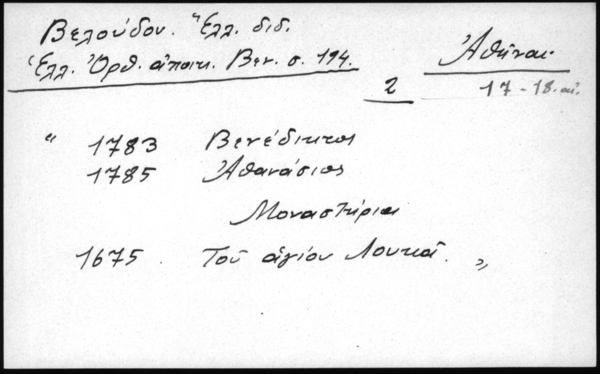 Βελούδου. Ἕλλ. διδ.
Ἑλλ. Ὀρθ. ἀποικ. Βεν. σ. 194.
Ἀθῆναι
2
17 - 18. αἰ.
" 1783 Βενέδικτος
1785 Ἀθανάσιος
Μοναστήρια
1675 . Τοῦ ἁγίου Λουκᾶ. "